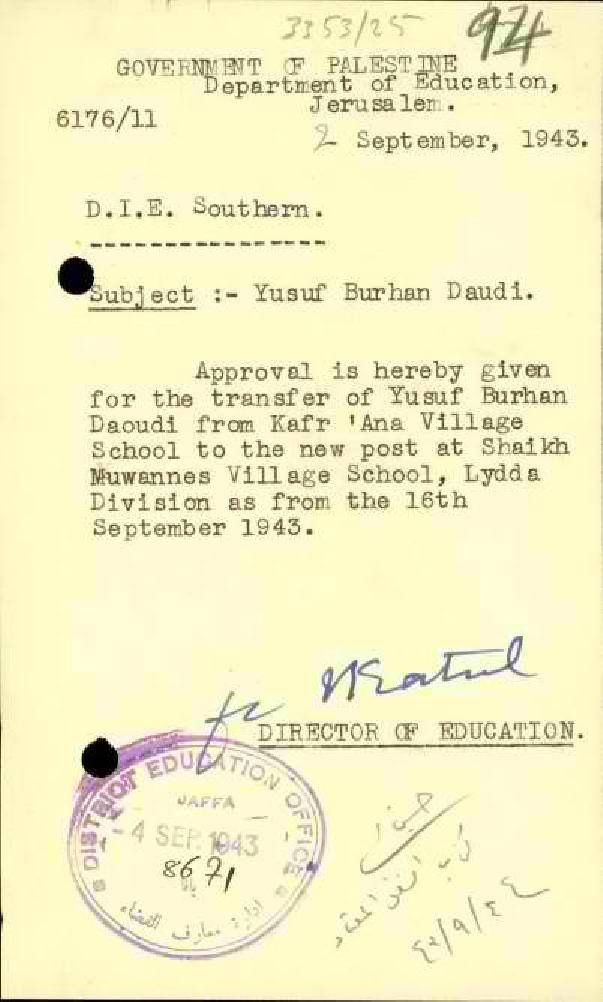 3353/25
94
GOVERNMENT OF PALESTINE
Department of Education,
Jerusalem.
6176/11
2 September, 1943.
D.I.E. Southern.
----------------
Subject :- Yusuf Burhan Daudi.
Approval is hereby given
for the transfer of Yusuf Burhan
Daoudi from Kafr 'Ana Village
School to the new post at Shaikh
Muwannes Village School, Lydda
Division as from the 16th
September 1943.
DIRECTOR OF EDUCATION.
DISTRICT EDUCATION OFFICE
JAFFA
- 4 SEP. 1943
8671
يافا
ادارة معارف اللواء